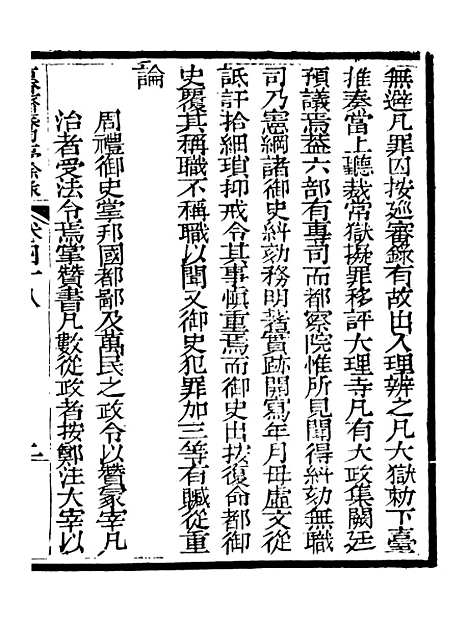 無避凡罪囚按巡審錄有故出入理辨之凡大獄勅下臺
推奏當上聽裁常獄擬罪移評大理寺凡有大政集闕廷
預議焉葢六部有專司而都察院惟所見聞得糾劾無職
司乃憲綱諸御史糾劾務明著實跡開寫年月毋虛文從
詆訐拾細瑣抑戒令其事慎重焉而御史出按復命都御
史覆其稱職不稱職以聞又御史犯罪加三等有贓從重
論
周禮御史掌邦國都鄙及萬民之政令以贊冢宰凡
治者受法令焉掌贊書凡數從政者按鄭注大宰以
卷四十八
二